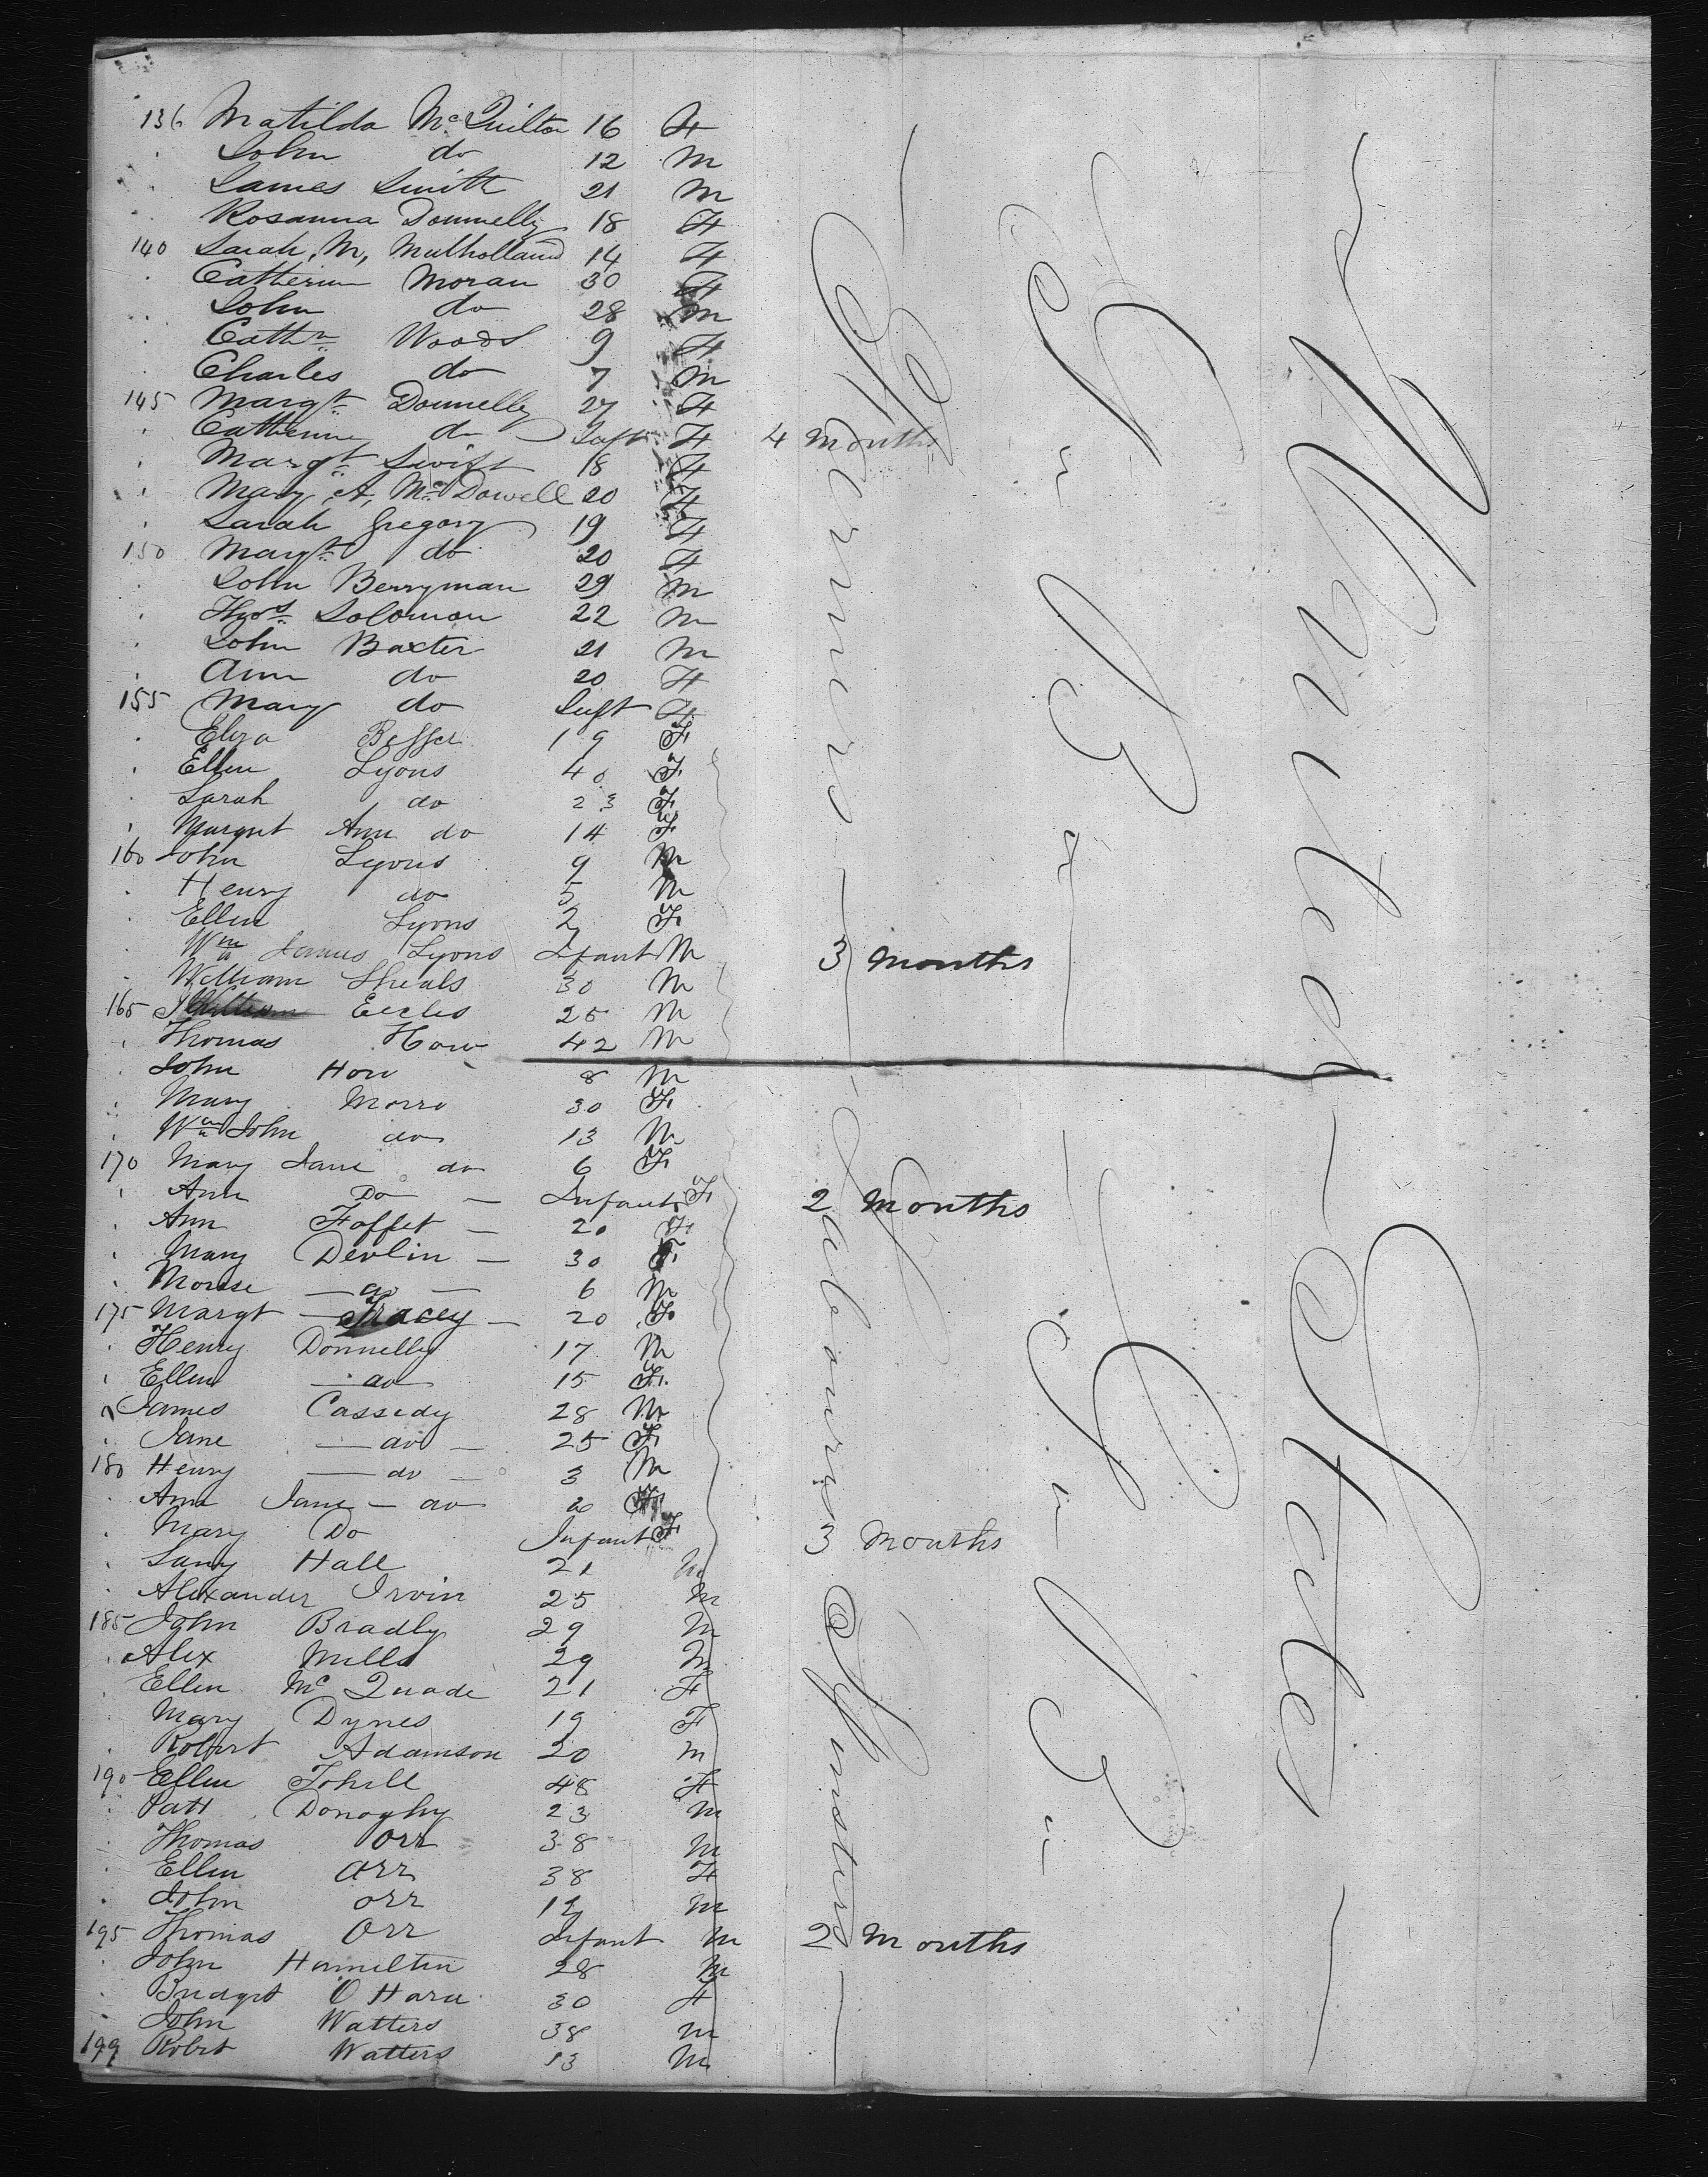 136 Matilda McQuilton 16 F
John do 12 M
James Smith 21 M
Rosanna Donnelly 18 F
140 Sarah, M, Mulholland 14 F
Catherine Moran 30 F
John do 28 M
Cathn Woods 9 F
Charles do 7 M
145 Margt Donnelly 27 F
Catherine do Inft F 4 months
Margt Swift 18 F
Mary A, McDowell 20 F
Sarah Gregory 19 F
150 Margt do 20 F
John Berryman 29 M
Thos Solomon 22 M
John Baxter 21 M
Ann do 20 F
155 Mary do Inft F
Eliza 19 F
Ellen Lyons 40 F
Sarah do 23 F
Margret Ann do 14 F
160 John Lyons 9 M
Henry do 5 M
Ellen Lyons 2 F
Wm James Lyons Ifant M 3 months
William Sheals 30 M
165 Eccles 25 M
Thomas How 42 M
John How 8 M
Mary Morro 30 F
Wm John do 13 M
170 Mary Jane do 6 F
Ann Do — Infant F 2 Months
Ann — 20 F
Mary Devlin — 30 F
— do — 6 M
175 Margt — Tracey — 20 F
Henry Donnelly 17 M
Ellen — do 15 F
James Cassidy 28 M
Jane — do — 25 F
180 Henry — do — 3 M
Ann Jane — do F
Mary Do Infant F 3 Months
Hall 21 M
Alexander Irvin 25 M
185 John Bradly 29 M
Alex Mills 29 M
Ellen Mc Quade 21 F
Mary Dynes 19 F
Robert Adamson 20 M
190 Ellen Tohill 48 F
Patt Donaghy 23 M
Thomas Orr 38 M
Ellen Orr 38 F
John Orr 12 M
195 Thomas Orr Infant M 2 Months
John Hamilton 28 M
Bridget O Hara 30 F
John Watters 38 M
199 Robt Watters 13 M
— Farmers —
— Labourers & Spinsters —
— United — States —